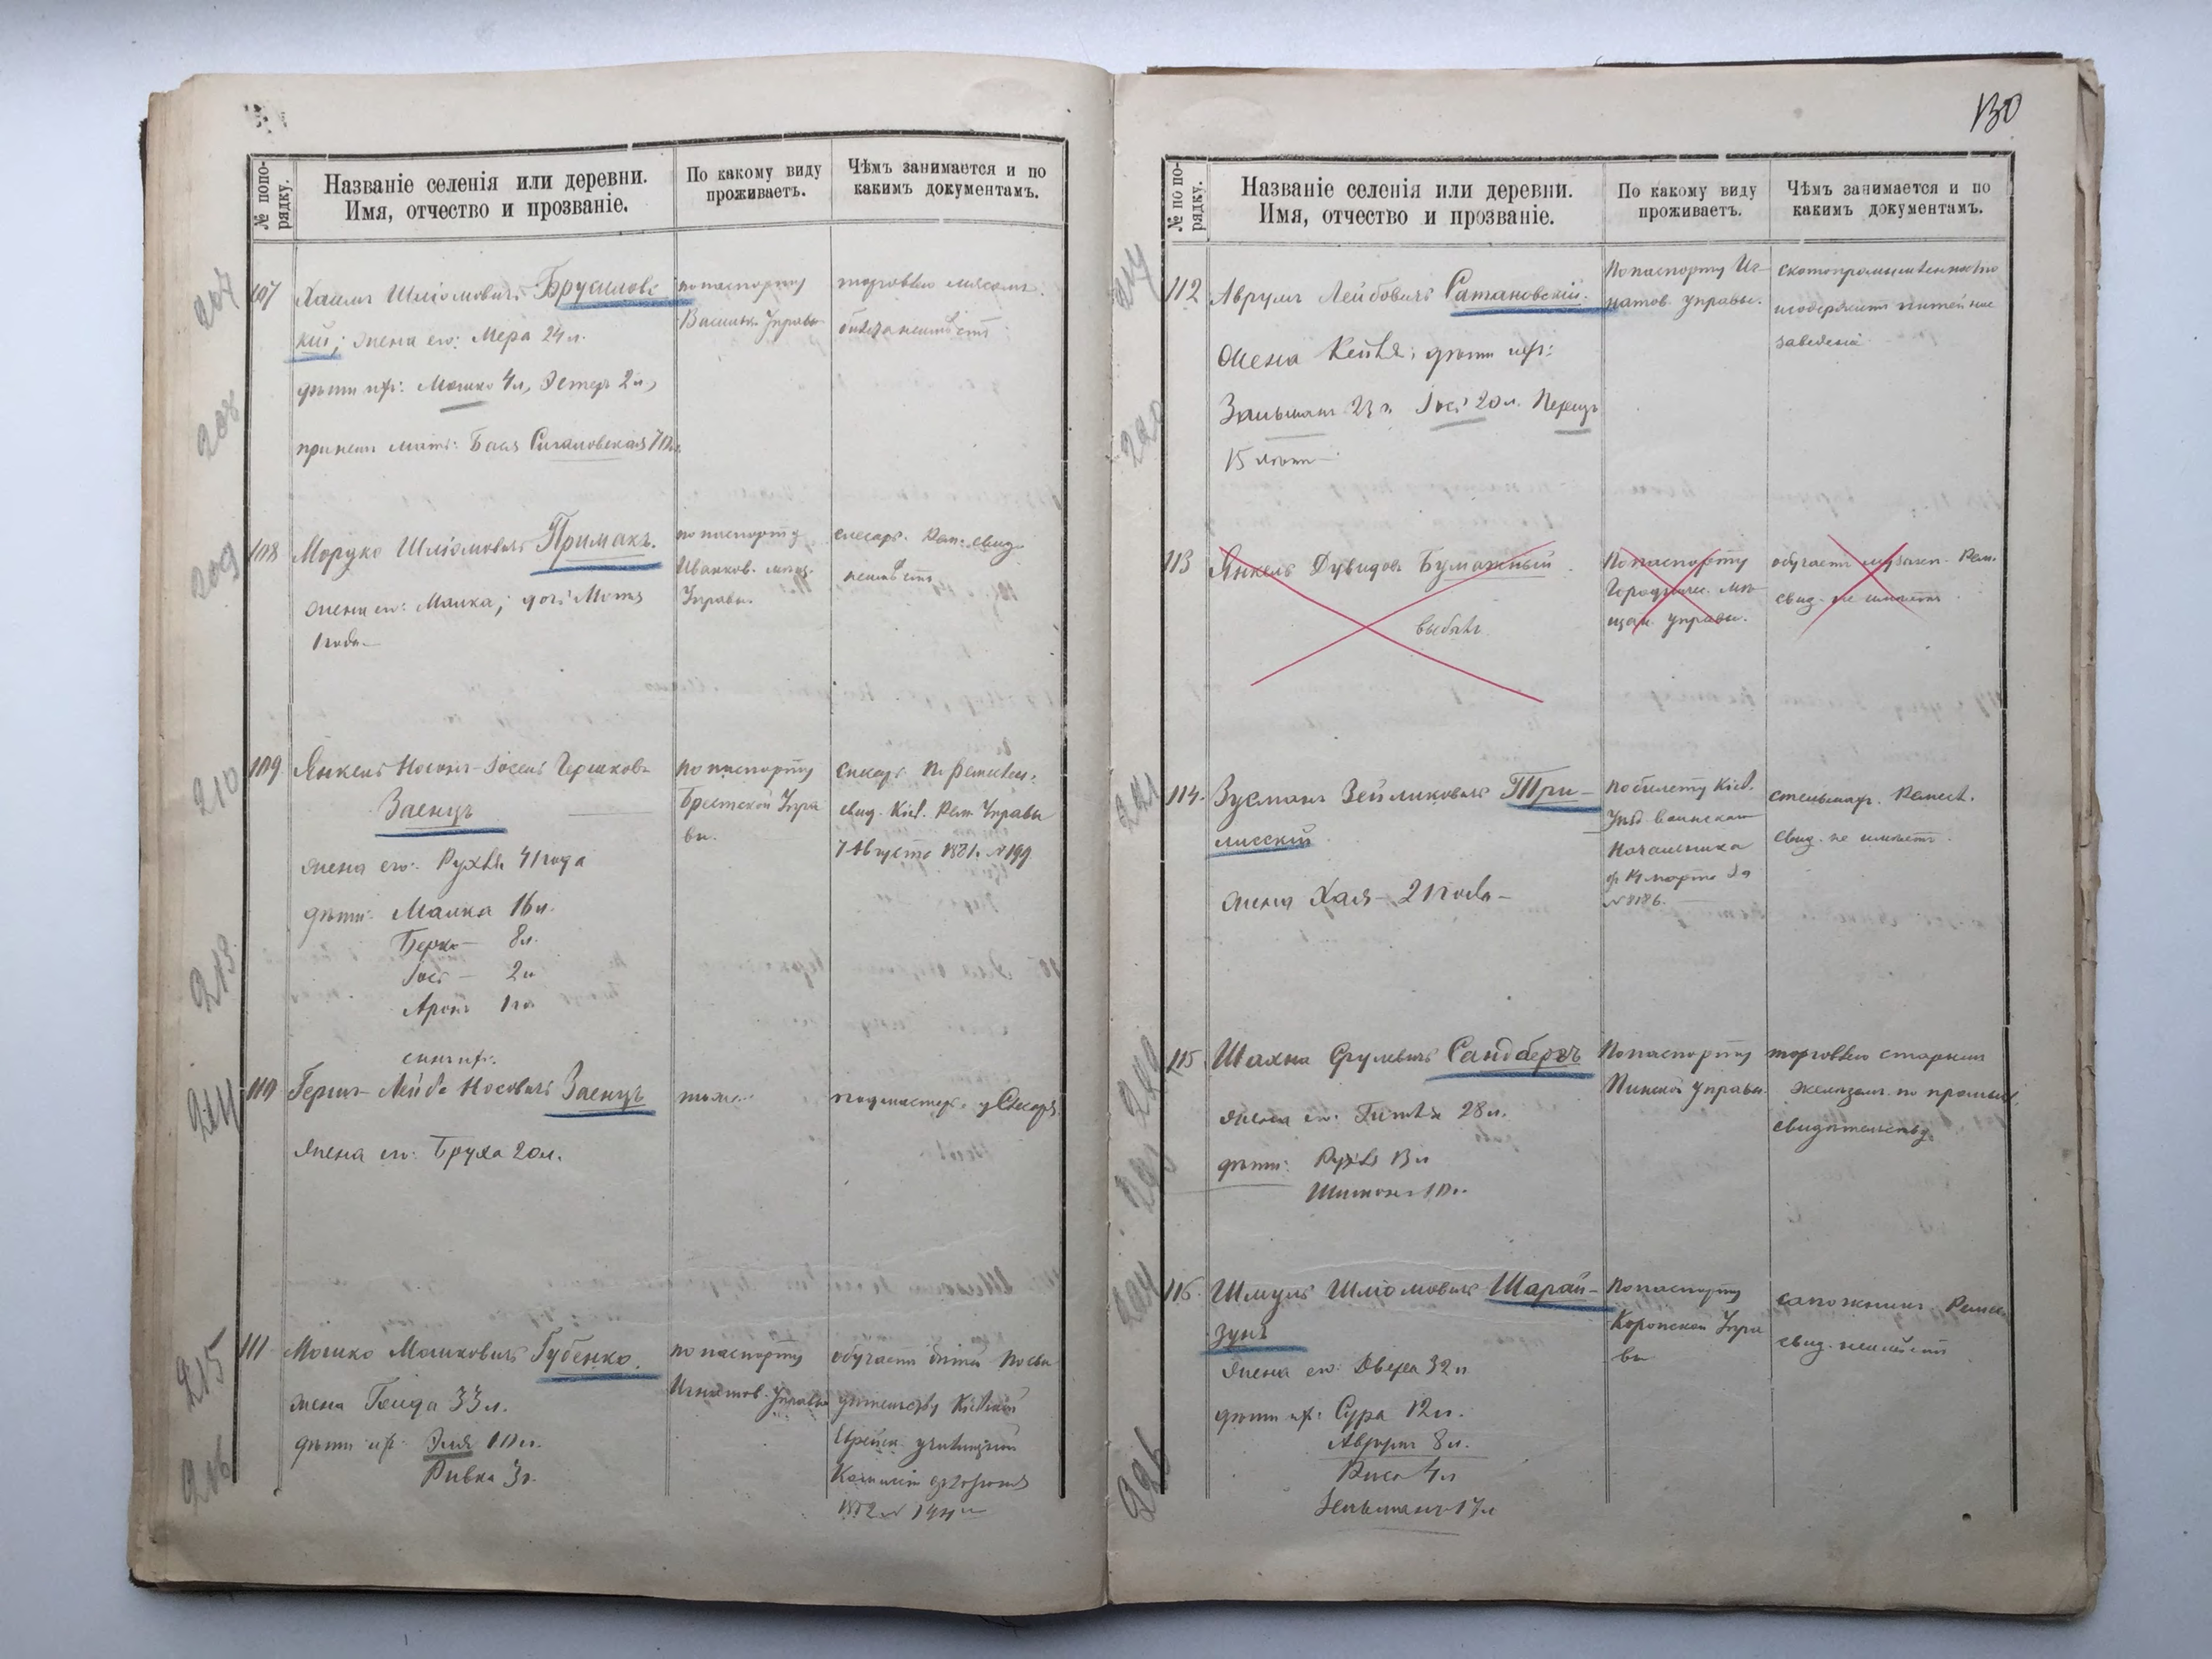 № попо-
рядку.
Названіе селенія или деревни.
Имя, отчество и прозваніе.
По какому виду
проживаетъ.
Чѣмъ занимается и по
какимъ документамъ.
207
107
Хаимъ Шліомовичъ Брусиловс
кій; жена его: Мера 24 л.
дѣти ихъ: Мошко 4 л, Эстеръ 2 л,
208
мать: Бася
по паспорту
Управы
торговлею мясомъ.
209
108
Мордко Шліомовичъ Примакъ.
жена его: Малка; дочь
1 года
по паспорту
Иванков. мѣщ.
Управы.
слесарь. Рем. свид.
неимѣетъ
210
109
Янкель Носонъ-Іосель Гершковъ
Заенцъ
жена его: Рухля 41 года
дѣти: Малка 16 л.
Берко 8 л.
Іось 2 л
Аронъ 1 го
213
по паспорту
Брестской Упра
вы.
Слесарь По ремеслен.
свид. Кіев. Рем. Управы
7 Августа 1881. № 199
сынъ ихъ.
214
110
Герш-Лейба Носовичъ Заенцъ
жена его: Бруха 20 л.
тоже
подмастер. у Слесаря
215
111
Мошко Мошковичъ Губенко.
жена Генда 33 л.
дѣти ихъ: Эля 10 л.
Ривка 3 г.
216
по паспорту
Игнатов. Управы
обучаетъ дѣтей По сви
дѣтельству Кіевской
Еврейск. училищной
Комисіи
130
№ по по-
рядку.
Названіе селенія или деревни.
Имя, отчество и прозваніе.
По какому виду
проживаетъ.
Чѣмъ занимается и по
какимъ документамъ.
112
Аврумъ Лейбовичъ Сатановскій.
жена Кейля; дѣти ихъ:
Зельманъ 23 л. Іось 20 л. Перецъ
15 лѣтъ
220
По паспорту Иг-
натов. управы.
скотопромышленностью
исодержитъ питейное
заведеніе
113
Янкель Дувидовъ Бумажный.
выбылъ
По паспорту
Городнянс. Мѣ
щан. управы.
обучаетъ музыкѣ. Рем.
свид. не имѣетъ
221
114.
Зусманъ Зейликовичъ Три-
лисскій
жена Хая 21 года
По билету Кіев.
Уѣзд Воинскаго
Начальника
№ 8186.
стельмах. Ремесл.
свид. не имѣетъ.
115
Шахна Срулевичъ Сандбергъ
жена его: Гитля 28 л.
дѣти: Рухля 13 л
Шимонъ 10 л.
По паспорту
Пинской управы.
торговлею старымъ
желѣзомъ по промысл.
свидѣтельству.
224
116.
Шмуль Шліомовичъ Шарай-
зунъ
жена его: Двейра 32 л
дѣти ихъ: Сура 12 л.
Аврумъ 8 л.
4 л
Зельманъ 17 л
226
По паспорту
Коропской Упра
вы
сапожникъ Ремесл
свид. неимѣетъ